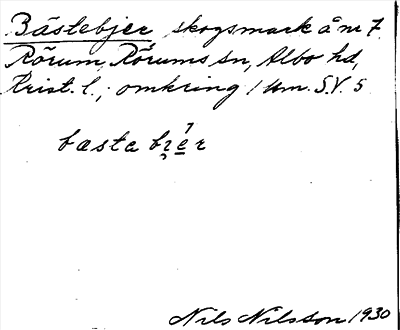 Bästebjer skogsmark å nr 7
Rörum, Rörums sn, Albo hd,
Krist. l., omkring 1 km. S.V. 5
bæstabjer
Nils Nilsson 1930